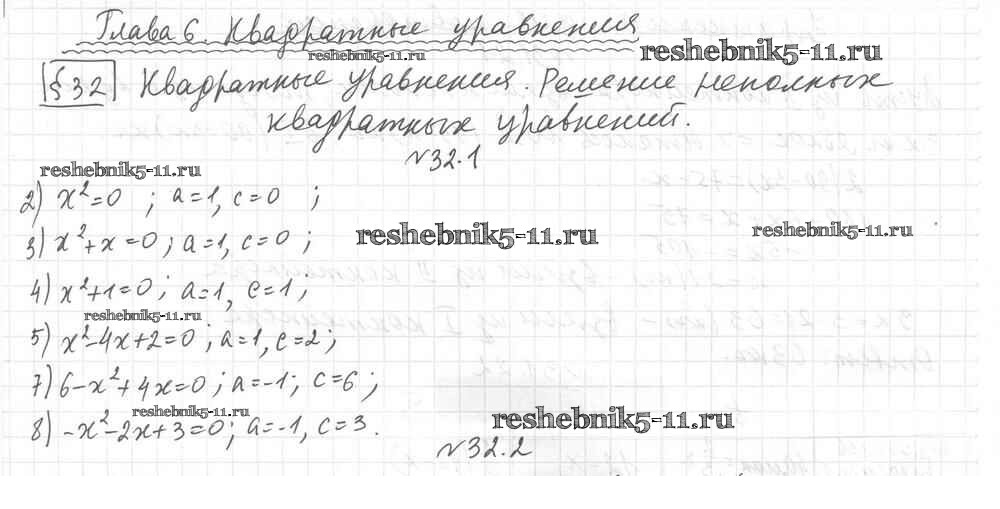 Глава 6. Квадратные уравнения
reshebnik5-11.ru
reshebnik5-11.ru
§32 Квадратные уравнения. Решение неполных
квадратных уравнений.
№32.1
reshebnik5-11.ru
2) x²=0 ; a=1, c=0 ;
3) x²+x=0; a=1, c=0 ;
reshebnik5-11.ru
reshebnik5-11.ru
4) x²+1=0; a=1, c=1;
reshebnik5-11.ru
5) x²-4x+2=0; a=1, c=2;
7) 6-x²+4x=0; a=-1; c=6;
reshebnik5-11.ru
reshebnik5-11.ru
8) -x²-2x+3=0; a=-1, c=3.
№32.2